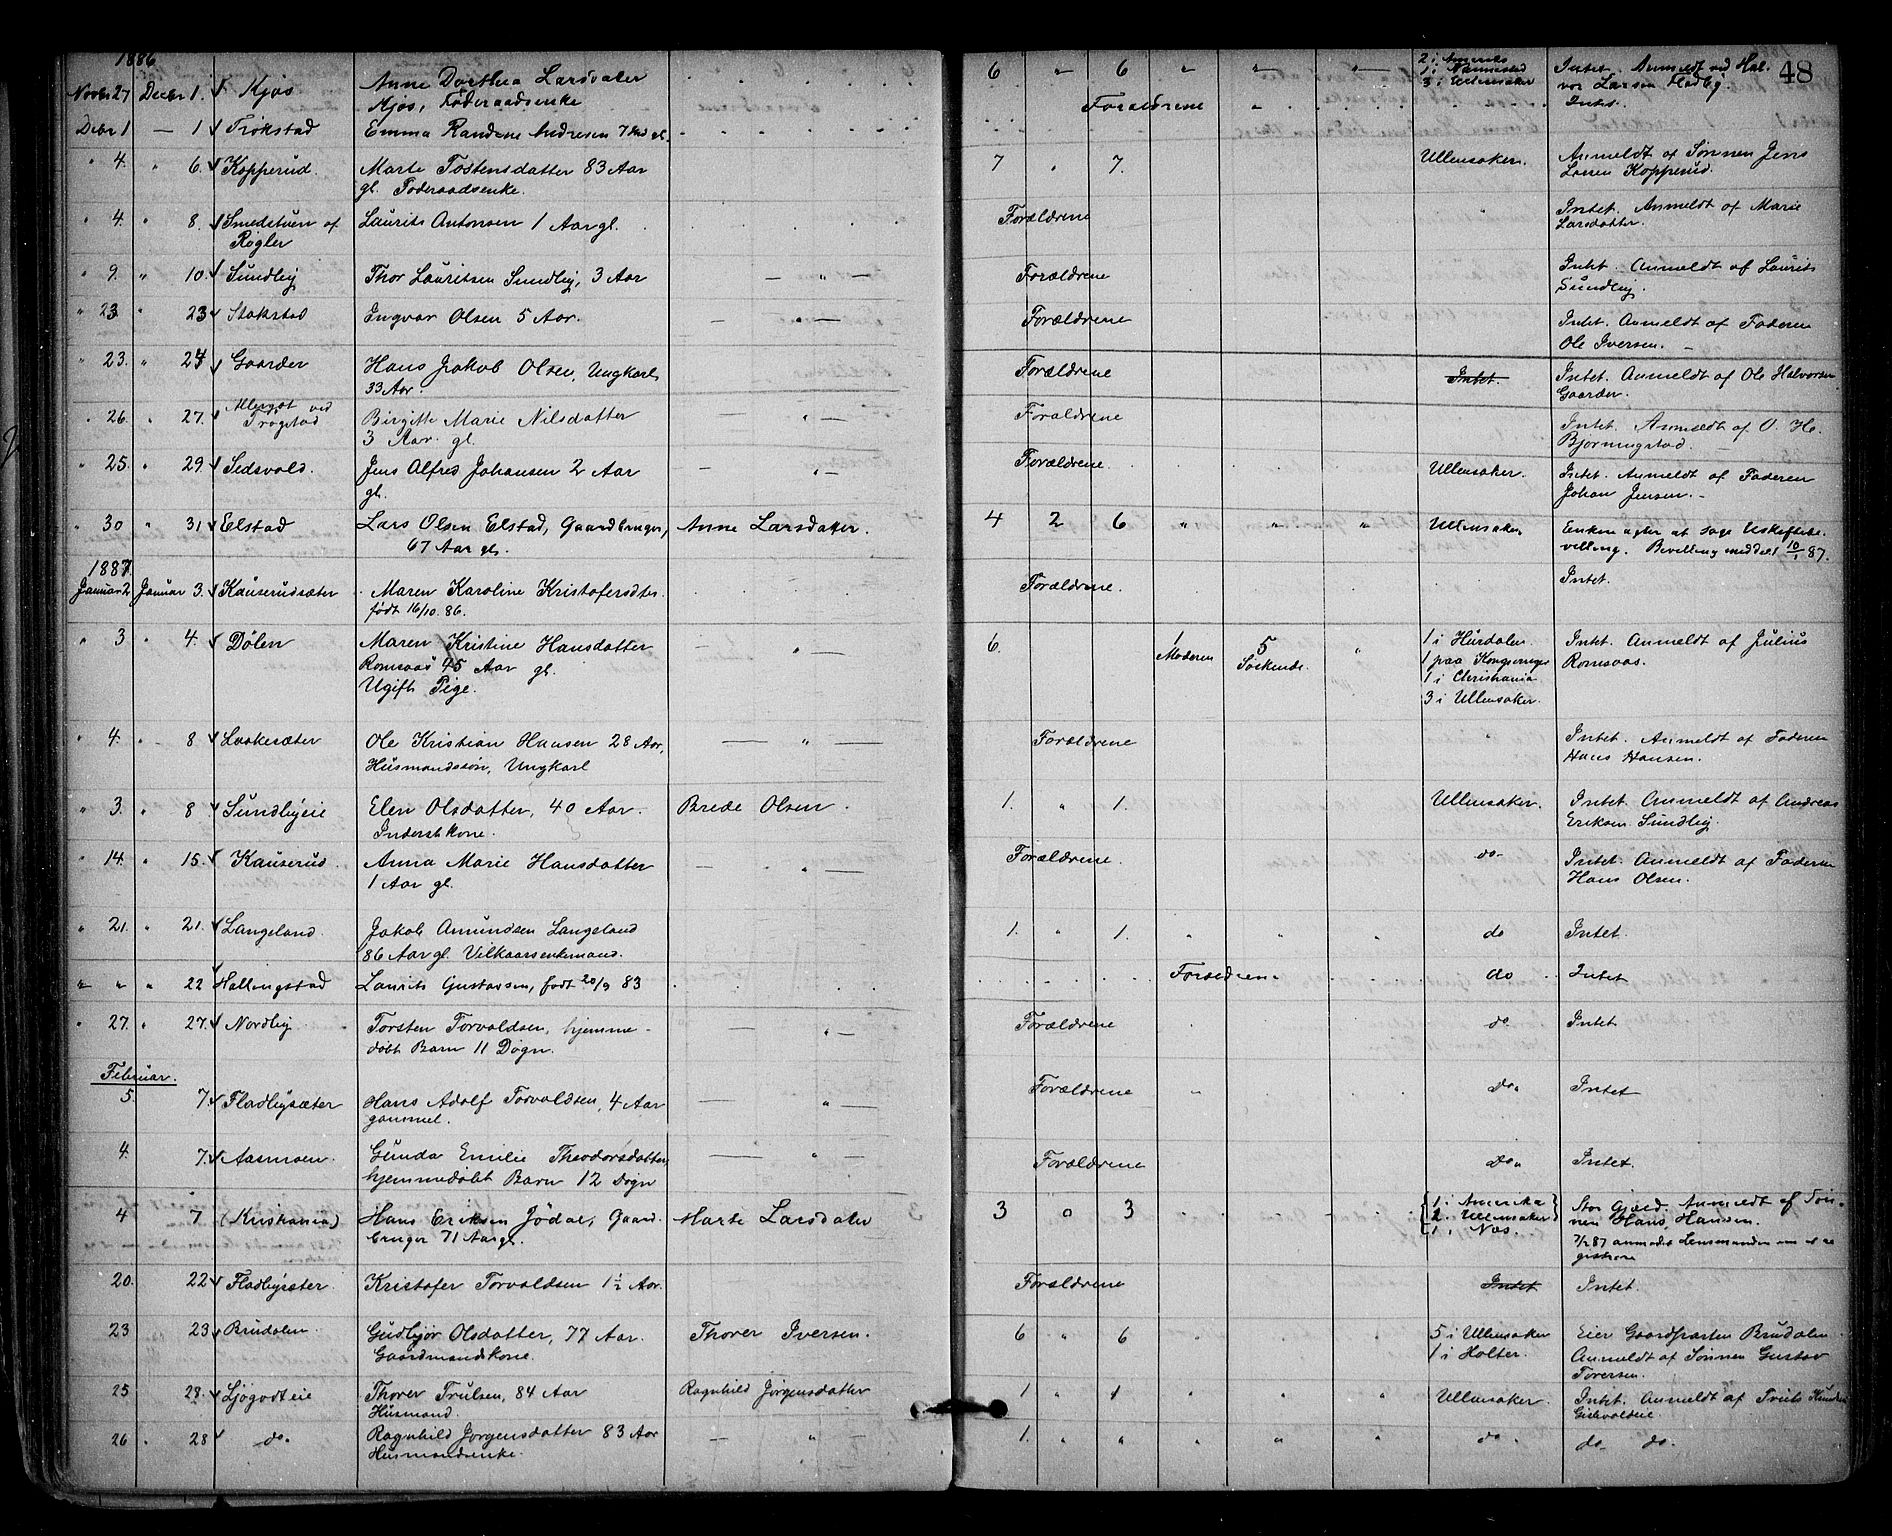 48
1886
Novbr 27 Decbr 1. Kjøs Anne Dorthea Larsdater 6 " 6 " " " 2 i Amerika Intet. Anmeldt ved Hal-
Kjøs, Føderaadsenke 1 i Nannestad vor Larsen Fladby
3 i Ullensaker
Decbr 1 — 1 Trøkstad Emma Randene Andresen 7 Md gl. Forældrene Intet.
" 4. " 6. Kopperud. Marte Tostensdatter 83 Aar 7 " 7. Ullensaker. Anmeldt af Sønnen Jens
gl. Føderaadsenke. Larsen Kopperud.
" 4. " 8. Smedstuen af Laurits Antonsen 1 Aar gl. Forældrene " Intet. Anmeldt af Marie
Røgler Larsdatter.
" 9. " 10. Sundby Thor Lauritsen Sundby, 3 Aar — " — Forældrene Intet. Anmeldt af Laurits
Sundby.
" 23 " 23 Stakstad Ingvar Olsen 5 Aar. — " — Forældrene Intet. Anmeldt af Faderen
Ole Iversen. —
" 23. " 24 Gaarder Hans Jakob Olsen, Ungkarl Forældrene Intet. Intet. Anmeldt af Ole Halvorsen
33 Aar Gaarder.
" 26. " 27. ved Birgitte Marie Nilsdatter — " — Forældrene Intet. Anmeldt af O. H.
Trøgstad 3 Aar. gl. Bjørningstad.
" 25. " 29. Sedsvold. Jens Alfred Johansen 2 Aar — " — Forældrene. Ullensaker. Intet. Anmeldt af Faderen
gl. Johan Jensen. —
" 30 " 31 Elstad Lars Olsen Elstad, Gaardbruger, Anne Larsdater. 4 2 6 " " " Ullensaker Enken agter at søge Uskiftebe-
67 Aar gl. villing. Bevilling meddelt 10/1 87.
1887
Januar 2 Januar 3. Kauserudsæter Maren Karoline Kristofersdtr. Forældrene. Intet.
født 16/10. 86.
" 3 " 4. Dølen Maren Kristine Hansdatter — " — 6. 1 5 " 1 i Hurdalen Intet. Anmeldt af Julius
Romsaas 45 Aar gl. Moderen Søskende. 1 paa Kongsvinger Romsaas.
Ugift Pige. 1 i Christiania
3 i Ullensaker.
" 4. " 8 Laakesæter Ole Kristian Hansen 28 Aar, — " — Forældrene " Intet. Anmeldt af Faderen
Husmandssøn, Ungkarl Hans Hansen.
" 3. " 8 Sundbyeie Elen Olsdatter, 40 Aar. Brede Olsen. 1. " 1. Ullensaker. Intet. Anmeldt af Andreas
Inderstkone. Eriksen Sundby.
" 14. " 15. Kauserud. Anna Marie Hansdatter — " — Forældrene. do. Intet. Anmeldt af Faderen
1 Aar gl. Hans Olsen.
" 21. " 21. Langeland. Jakob Amundsen Langeland 1. " 1. " " " do Intet.
86 Aar gl. Vilkaarsenkemand.
" " " 22 Hallingstad Laurits Gustavsen, født 20/9 83 Forældrene do Intet
" 27. " 27. Nordby Torsten Torvaldsen, hjemme- — " — Forældrene do. Intet
døbt Barn 11 Døgn.
Februar.
5. 7. Fladbysæter Hans Adolf Torvaldsen, 4 Aar — " — Forældrene " do. Intet
gammel.
4. 7. Aasmoen. Gunda Emilie Theodorsdatter, — " — Forældrene do. Intet.
hjemmedøbt Barn 12 Døgn
4 7 (Kristiania) Hans Eriksen Jødal, Gaard- Marte Larsdater 3 0 3 1 i Amerika Stor Gjæld. Anmeldt af Søn-
bruger 71 Aar gl. 2 " Ullensaker nen Hans Hansen.
1 " Næs. 7/2 87 anmodet Lensmanden om at re
gistrere
20. 22 Fladbysæter. Kristofer Torvaldsen 1½ Aar. Forældrene Intet Intet.
23 23 Brudalen. Gudbjør Olsdatter, 77 Aar. Thorer Iversen. 6 " 6 " " " 5 i Ullensaker Eier Gaardparten Brudalen.
Gaardmandskone. 1 i Holter. Anmeldt af Sønnen Gustav
Toversen.
25 28. Ljøgodteie Thorer Trulsen, 84 Aar Ragnhild Jørgensdatter 1 " 1 " " " Ullensaker Intet. Anmeldt af
Husmand.
26 " 28 do. Ragnhild Jørgensdatter 83 Aar — " — 1. " " " " " do. do. do.
Husmandsenke